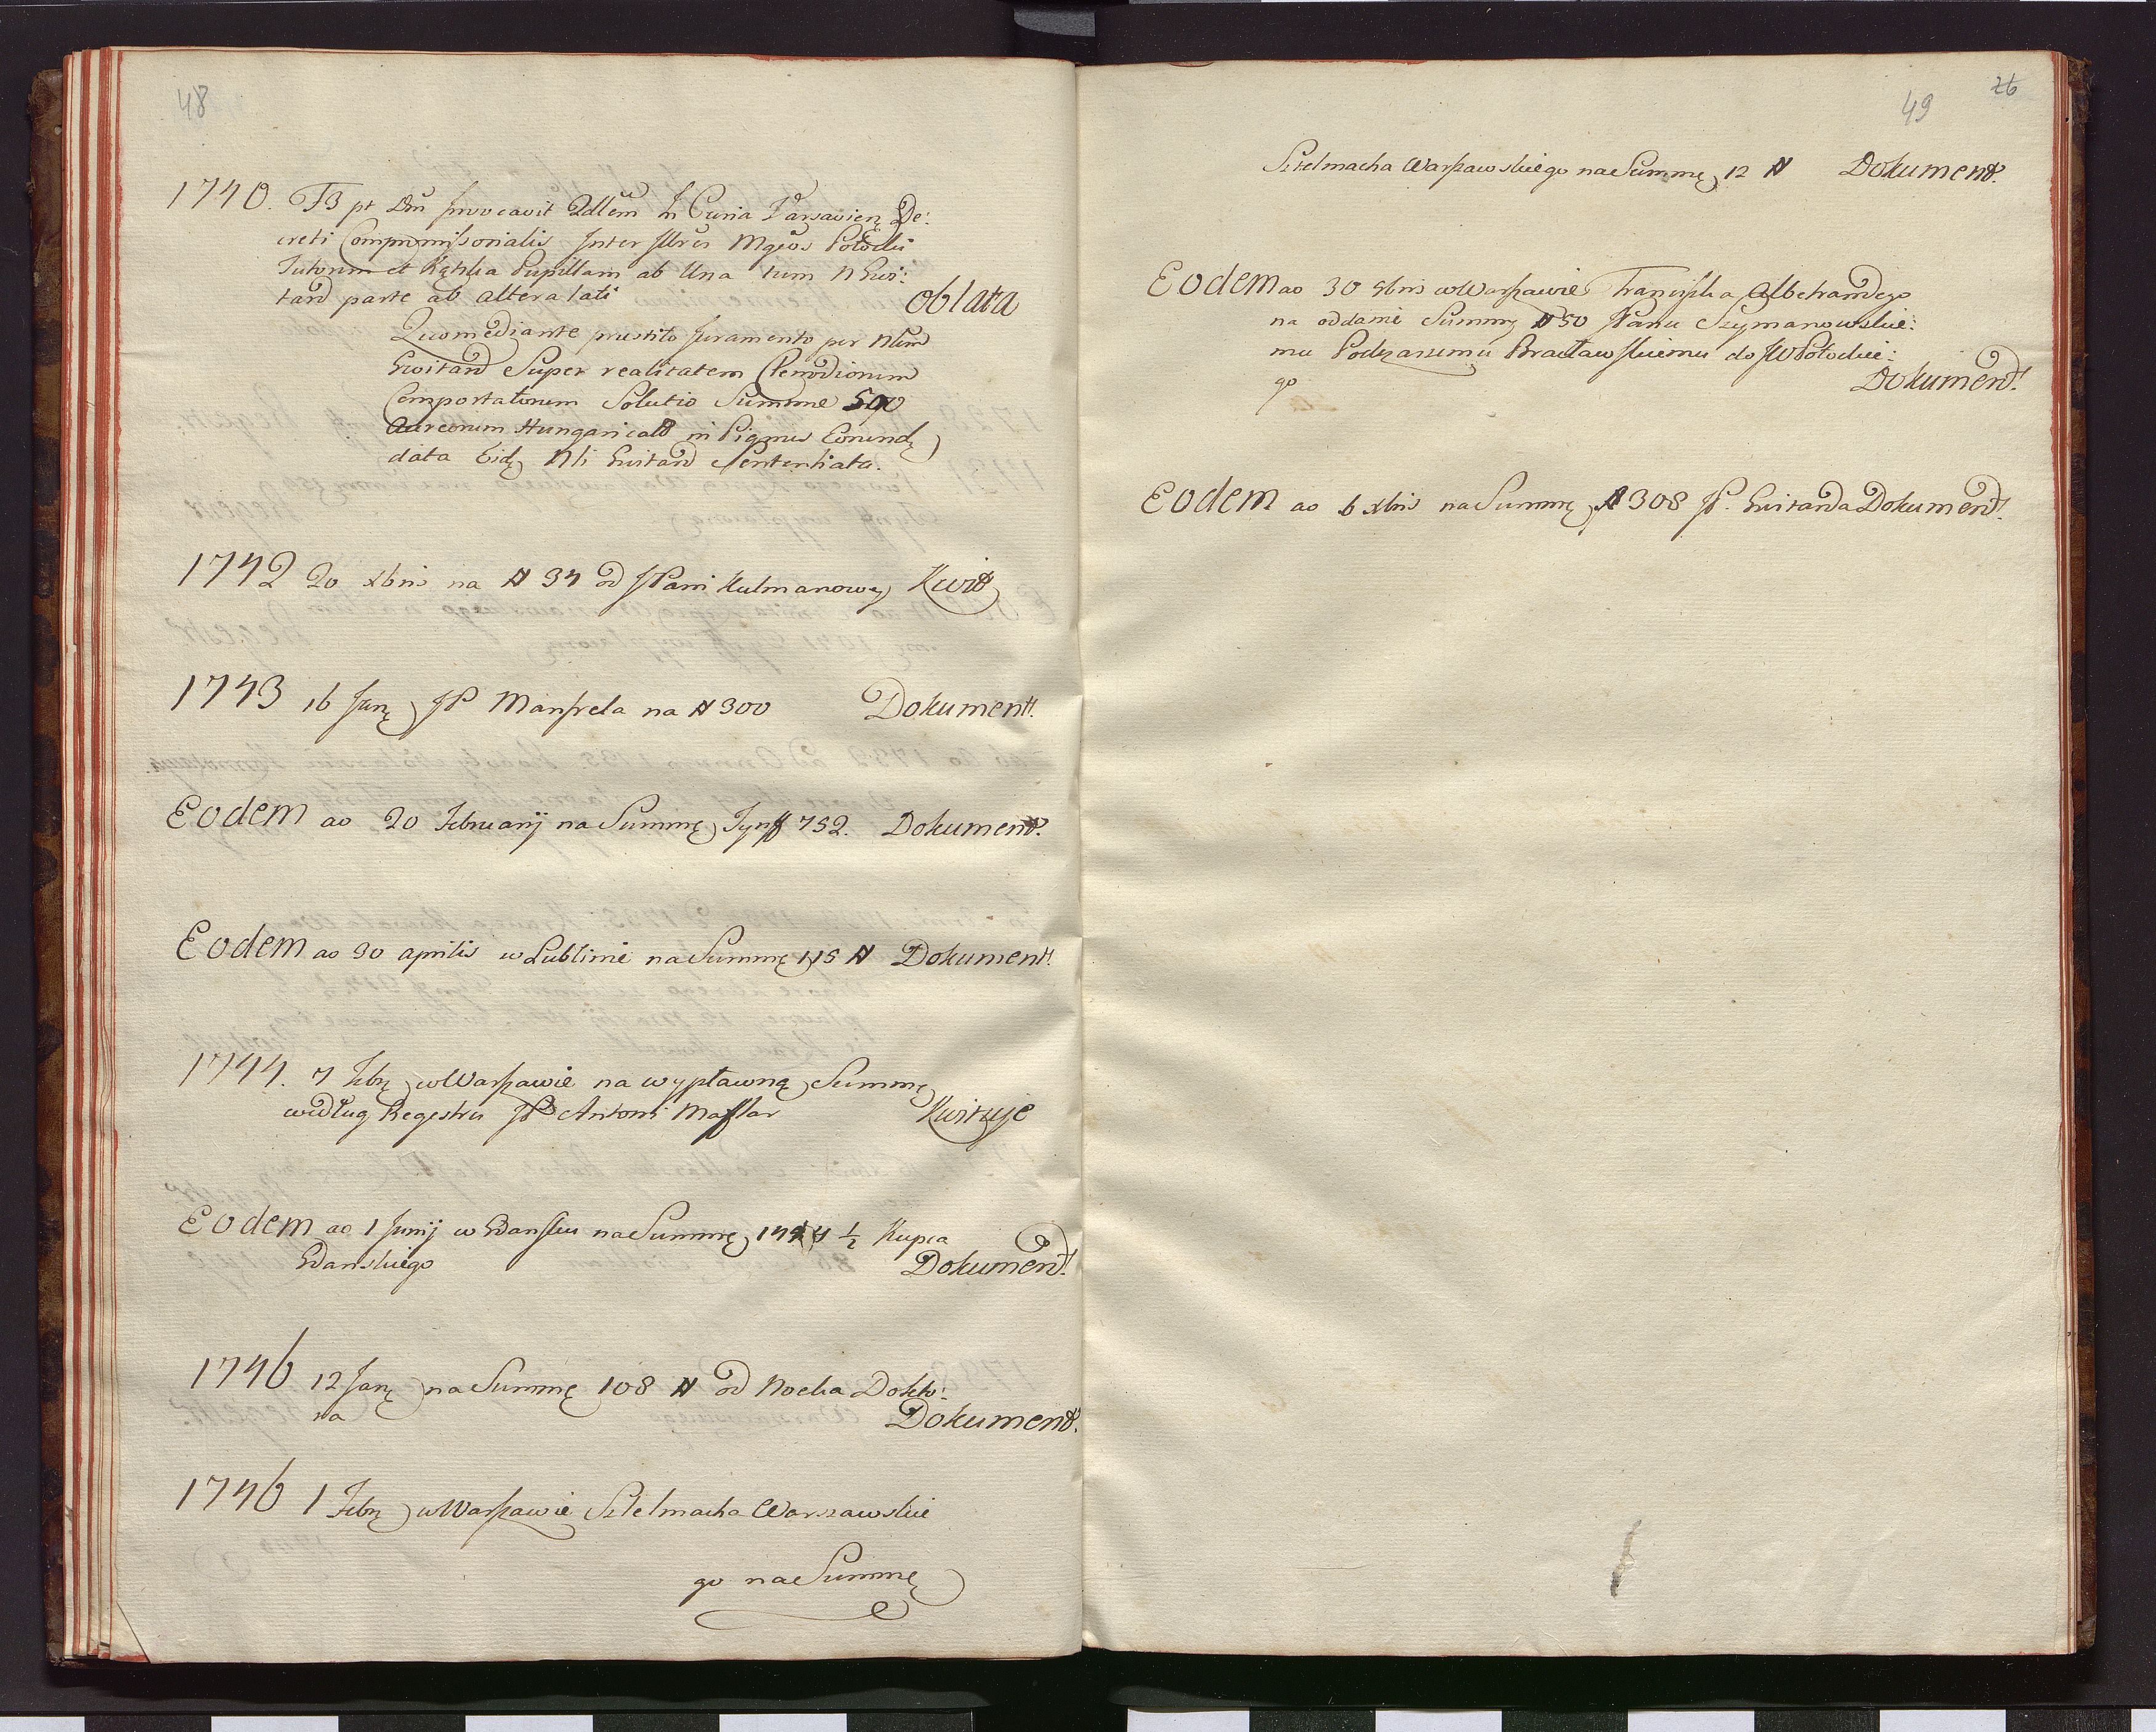 48
1740. F3 pt Dm̃ provocavit Qdlem In Curia Varsavien De:
creti Compromissorialis Inter Illres Mgcos Potockie
Tutorum et Pupillam ab Una tum N Gwi:
tard parte ab altera lati Oblata
Quo mediante prestito Juramento per Nlem
Gwitard Super realitatem Clenodiorum
Comportatorum Solutio Summe 590
Aureorum Hungarical in Pignus Eorund
data Eid Nli Gwitard Sententiata.
1742 20 xbris na # 34 od JPani Kulmanowy Kwit
1743 16 Jung JP Manfreta na # 300 Dokument.
Eodem ao 20 Februarij na Summę Tynff 752. Dokument.
Eodem ao 30 aprilis w Lublinie na Summę 115 # Dokument.
1744. 7 Febr w Warszawie na wypławną Summę
według Regestru JP Antoni Maslar Kwituje
Eodem ao 1 Junij w Gdansku na Summę ½ Kupca
Gdanskiego Dokument.
1746 12 Jan na Summę 108 # od Nocha Dokto:
ra Dokument.
1746 1 Febr w Warszawie Sztelmacha Warszawskie
go na Summę
49
26
Sztelmacha Warszawskiego na Summę 12 # Dokument.
Eodem ao 30 9bris w Warszawie Franciszka Albetrandego
na oddanie Summy # 50 JPanu Szymanowskie:
mu Podczaszemu Bracławskiemu do JW Potockie:
go Dokument.
Eodem ao 6 xbris na Summę # 308 JP. Gwitarda Dokument.